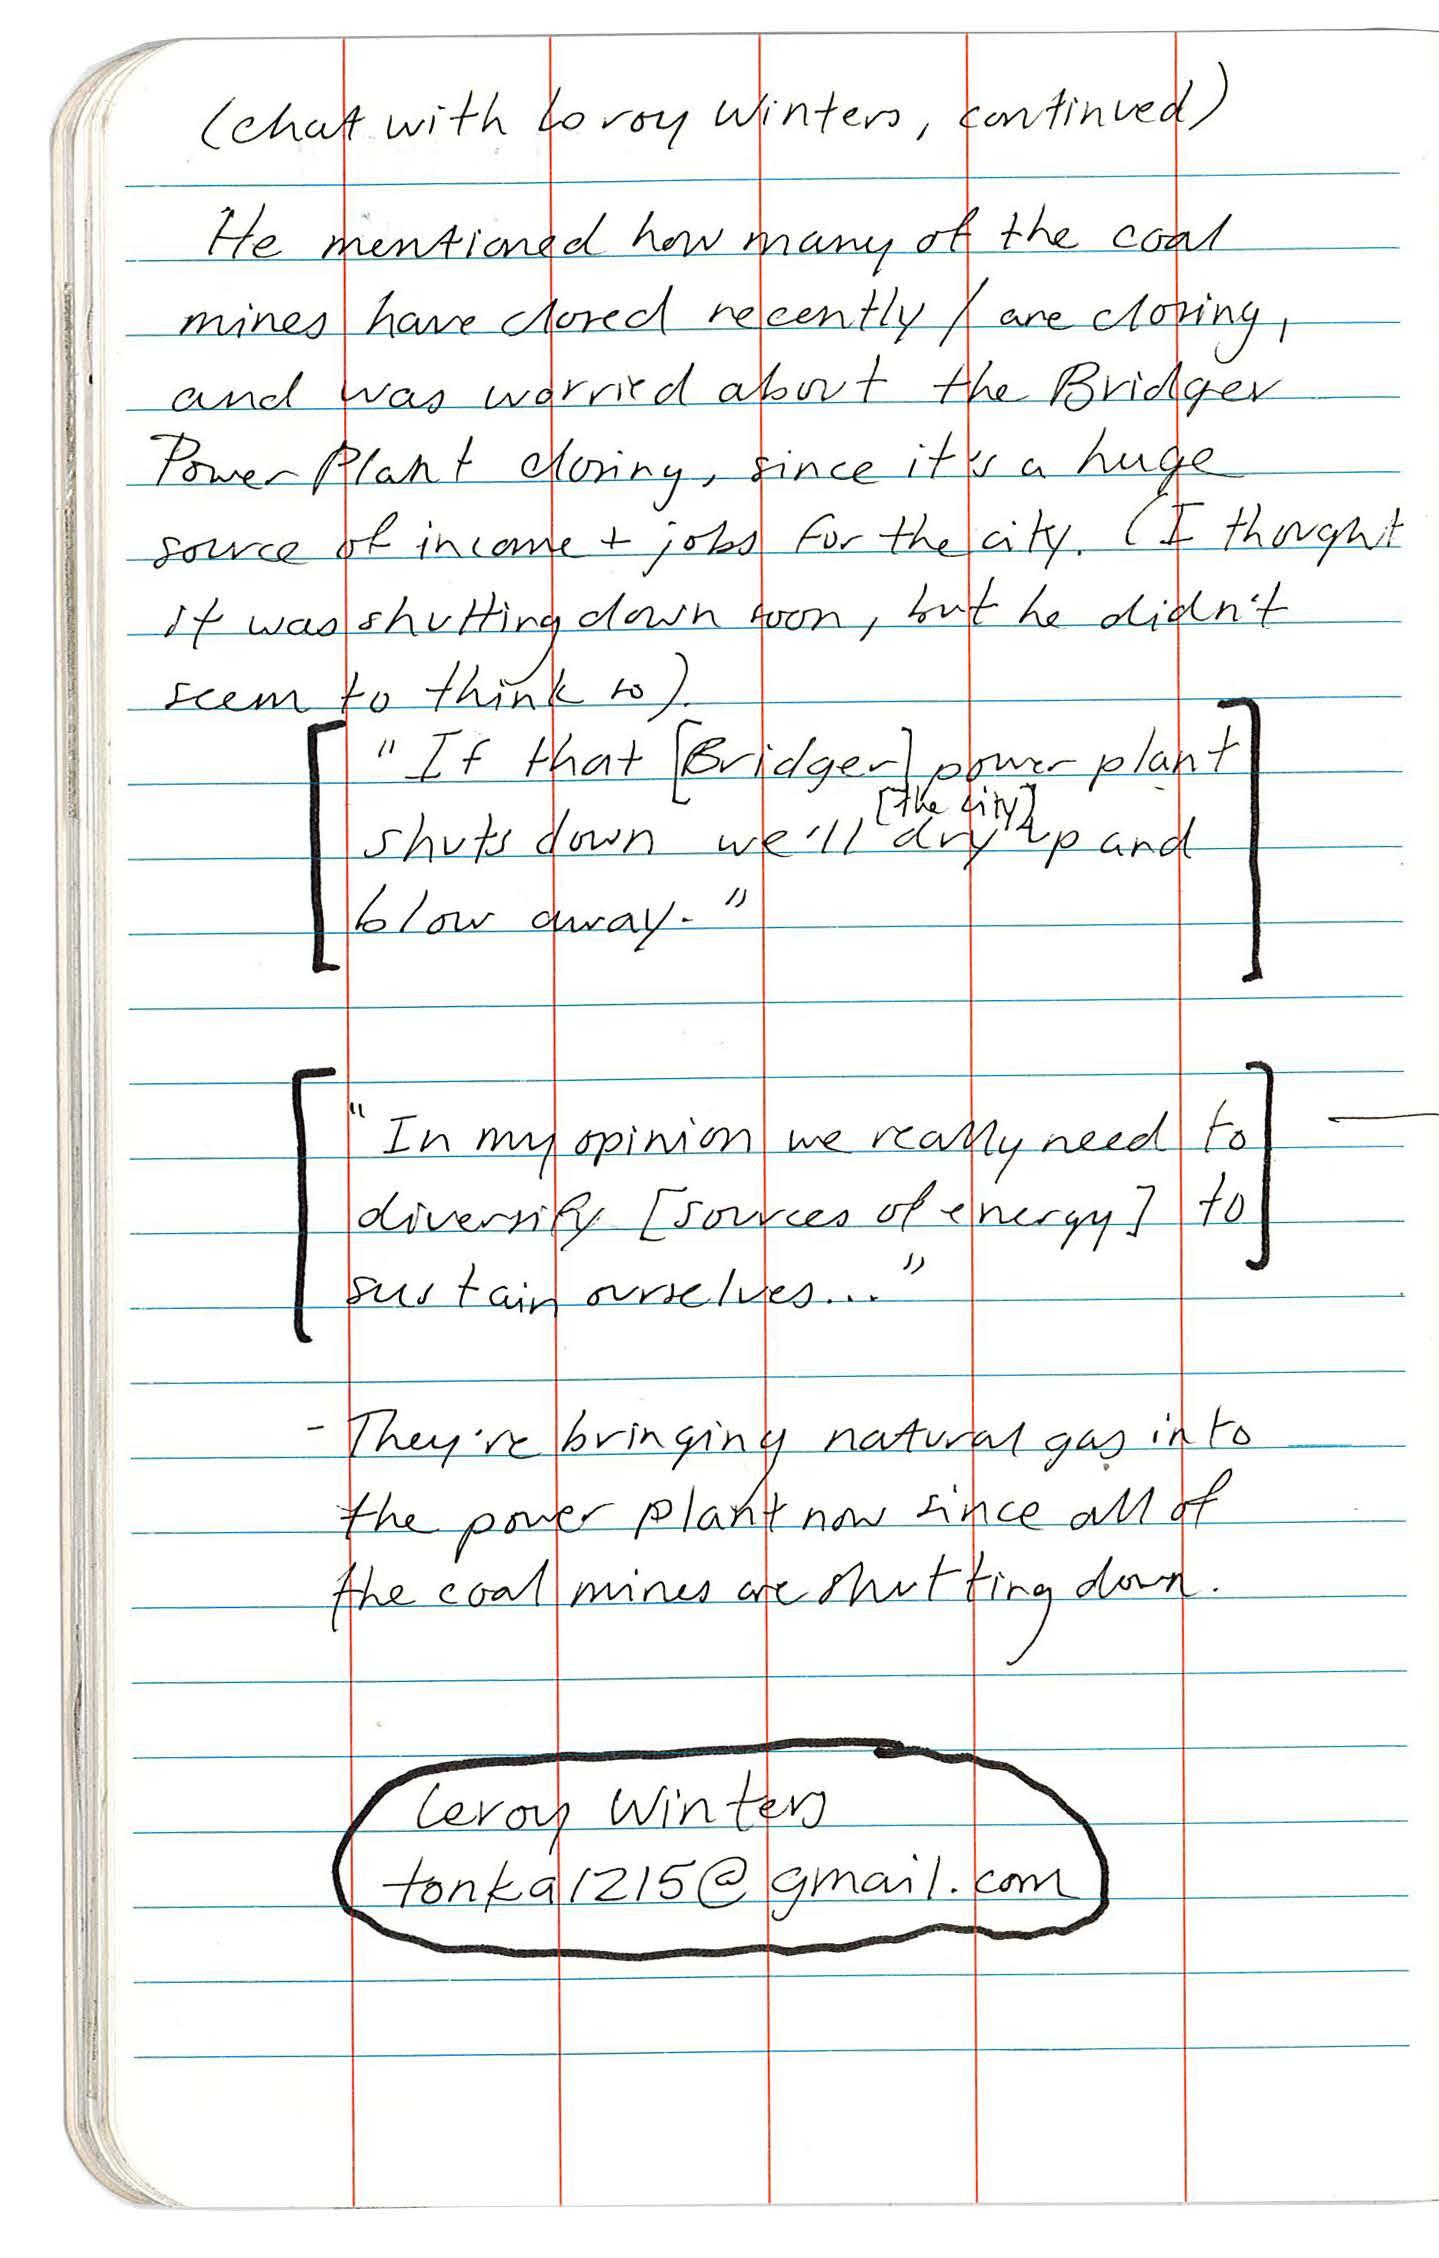 (chat with Leroy Winters, continued)
He mentioned how many of the coal
mines have closed recently / are closing,
and was worried about the Bridger
Power Plant closing, since it's a huge
source of income + jobs for the city. (I thought
it was shutting down soon, but he didn't
seem to think so).
"If that [Bridger] power plant
[the city]
shuts down we'll dry up and
blow away."
"In my opinion we really need to
diversify [sources of energy] to
sustain ourselves..."
- They're bringing natural gas into
the power plant now since all of
the coal mines are shutting down.
Leroy Winters
tonka1215@gmail.com